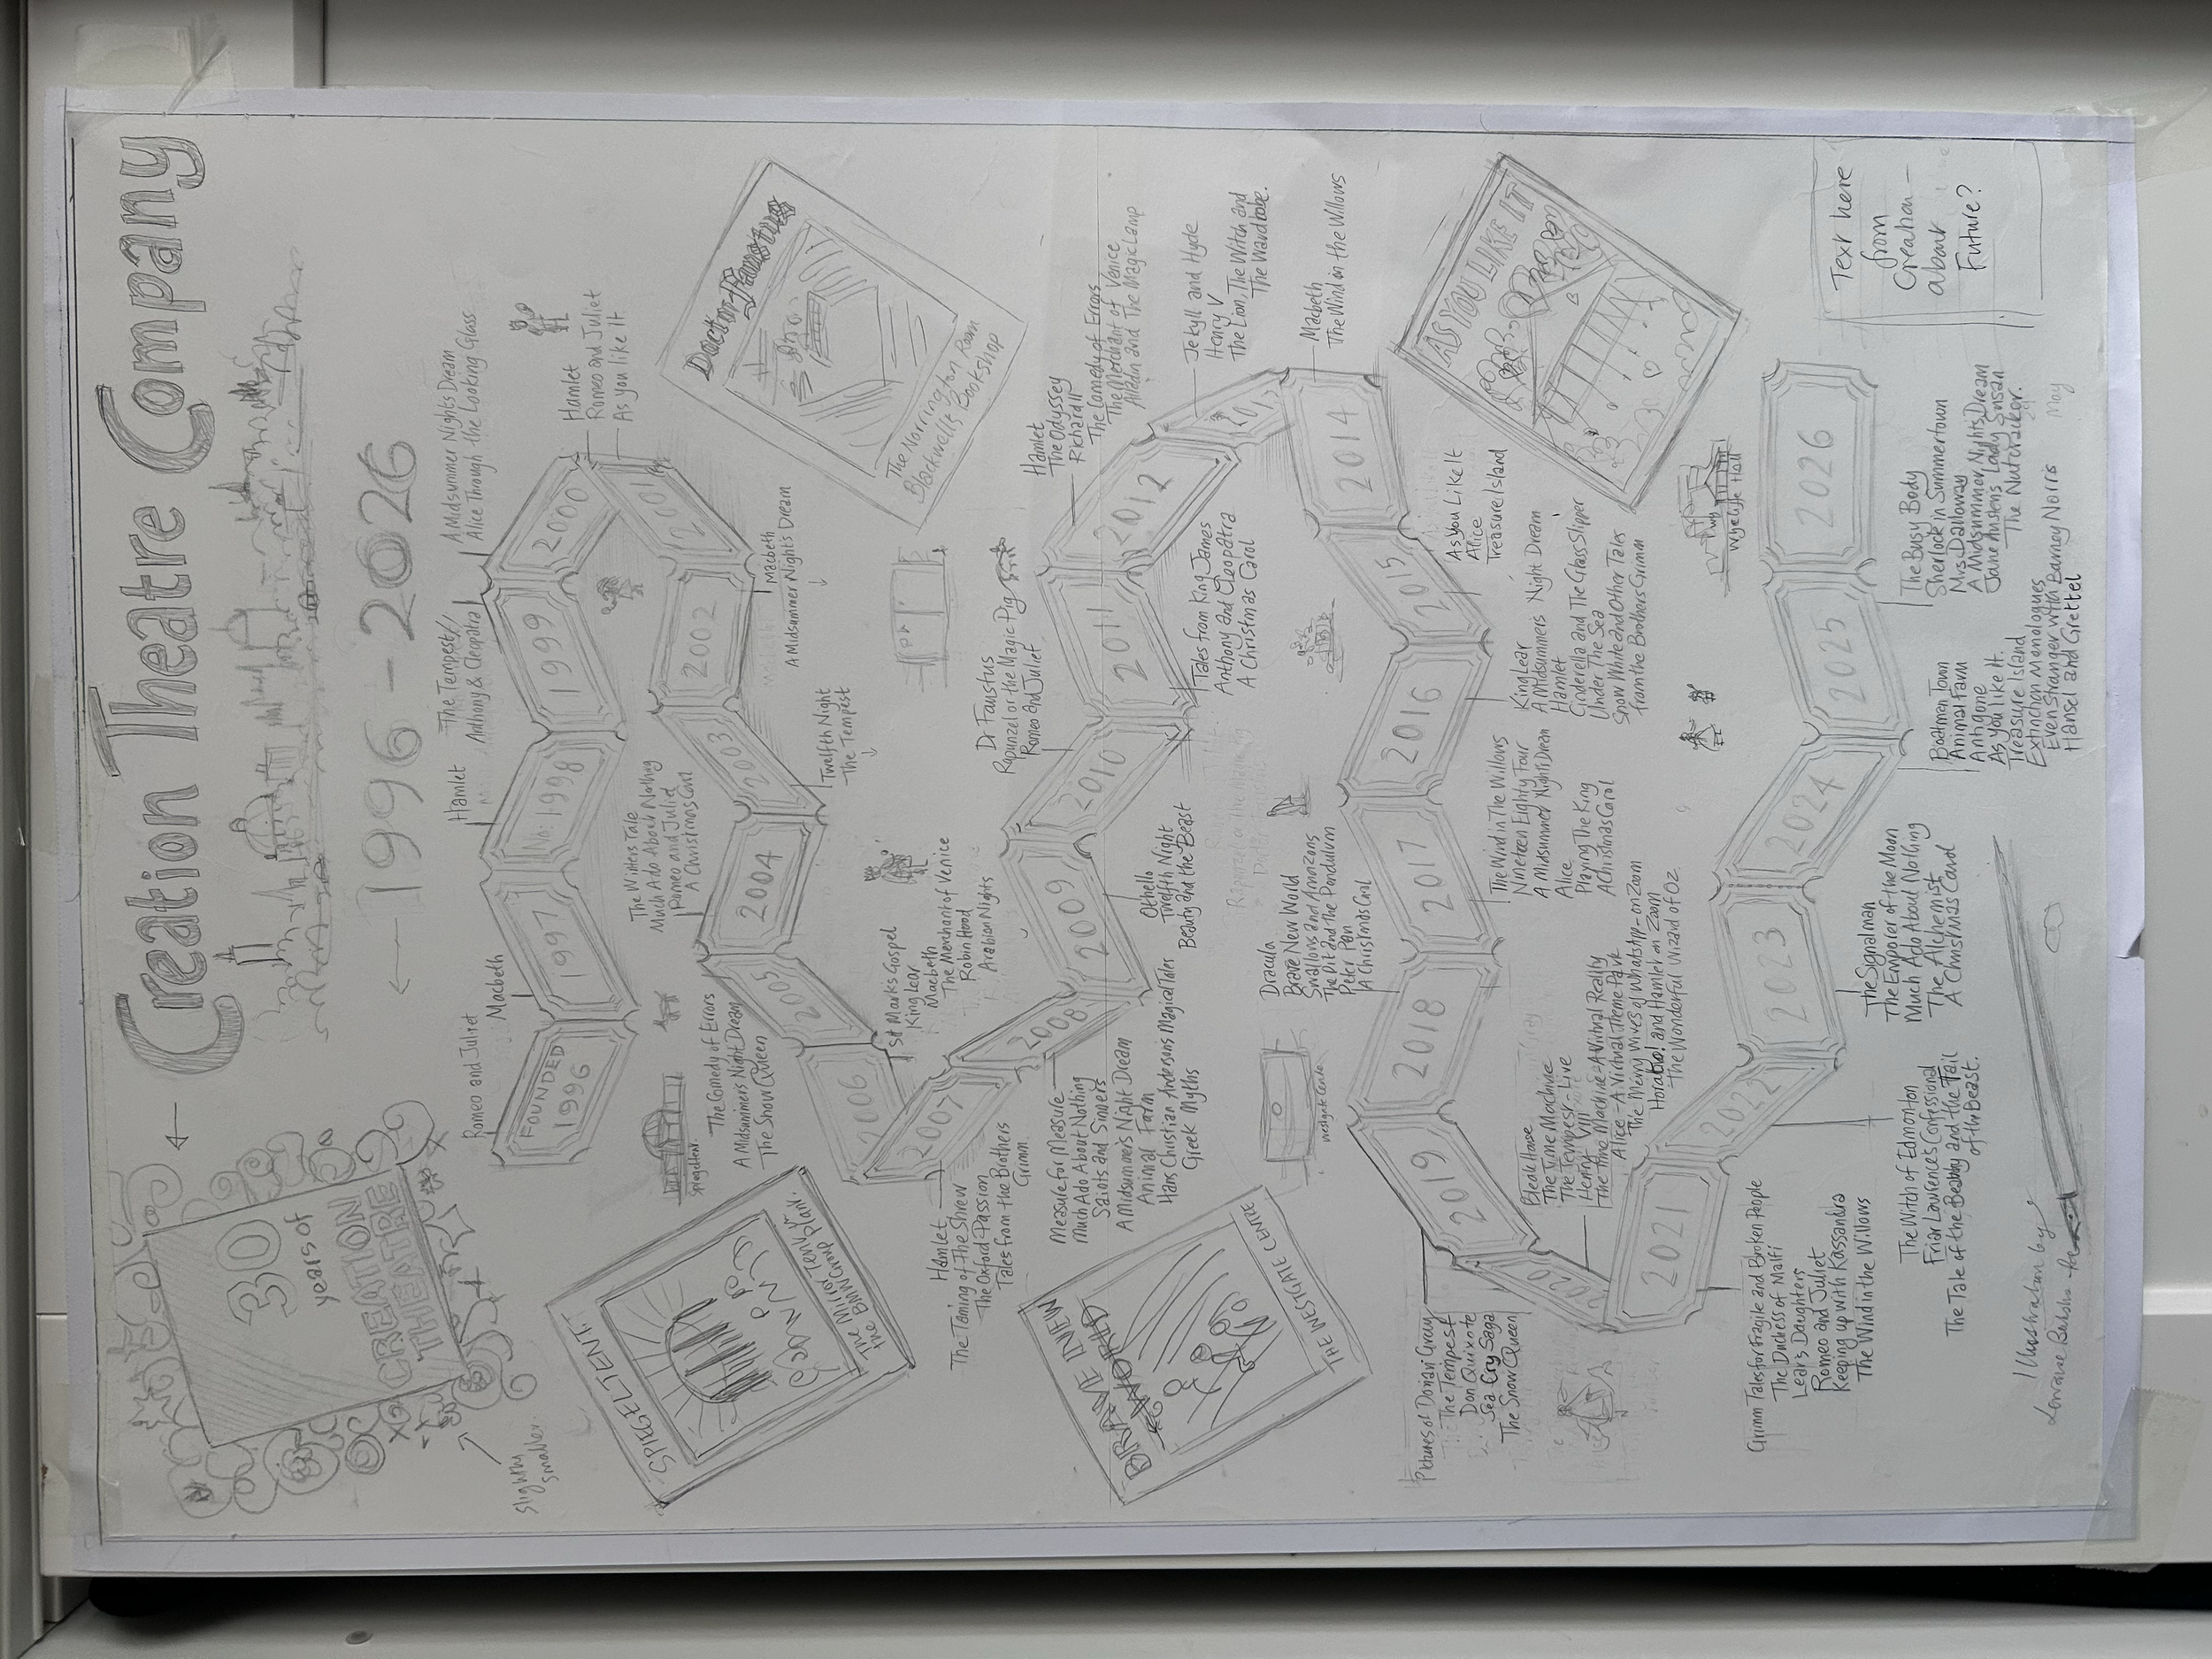 Creation Theatre Company
1996 - 2026
30
years of
CREATION
THEATRE
Slightly
smaller
Romeo and Juliet
FOUNDED
1996
Macbeth
1997
Hamlet
No: 1998
The Tempest/
Anthony & Cleopatra
1999
A Midsummer Nights Dream
Alice Through the Looking Glass
2000
Hamlet
Romeo and Juliet
As you like It
2001
2002
Macbeth
A Midsummer Nights Dream
2003
Twelfth Night
The Tempest
The Winters Tale
Much Ado About Nothing
Romeo and Juliet
A Christmas Carol
2004
The Comedy of Errors
A Midsummers Night Dream
The Snow Queen
2005
St Marks Gospel
King Lear
Macbeth
The Merchant of Venice
Robin Hood
Arabian Nights
2006
2007
Hamlet
The Taming of the Shrew
The Oxford Passion
Tales from the Brothers
Grimm
2008
Measure for Measure
Much Ado About Nothing
Saints and Sinners
A Midsummers Night Dream
Animal Farm
Hans Christian Andersons Magical Tales
Greek Myths
2009
Othello
Twelfth Night
Beauty and the Beast
2010
Dr Faustus
Rapunzel or the Magic Pig
Romeo and Juliet
2011
Tales from King James
Anthony and Cleopatra
A Christmas Carol
2012
Hamlet
The Odyssey
Richard II
The Comedy of Errors
The Merchant of Venice
Alladin and The Magic Lamp
Jekyll and Hyde
Henry V
The Lion, The Witch and
The Wardrobe.
2014
Macbeth
The Wind in the Willows
2015
As You Like It
Alice
Treasure Island
2016
King Lear
A Midsummers Night Dream
Hamlet
Cinderella and The Glass Slipper
Under The Sea
Snow White and Other Tales
from the Brothers Grimm
2017
The Wind in The Willows
Nineteen Eighty Four
A Midsummer Nights Dream
Alice
Playing The King
A Christmas Carol
2018
Dracula
Brave New World
Swallows and Amazons
The Pit and the Pendulum
Peter Pan
A Christmas Carol
2019
Pictures of Dorian Gray
The Tempest
Don Quixote
Sea Cry Saga
The Snow Queen
Bleak House
The Time Machine
The Tempest - Live
Henry VIII
The Time Machine - A Virtual Reality
Alice - A Virtual Theme Park
The Merry Wives of WhatsApp - on Zoom
Horatio! and Hamlet on Zoom
The Wonderful Wizard of Oz
2021
Grimm Tales for Fragile and Broken People
The Duchess of Malfi
Lears Daughters
Romeo and Juliet
Keeping up with Kassandra
The Wind in the Willows
2022
The Witch of Edmonton
Friar Lawrence's Confessional
The Tale of the Beauty and the Tail
of the Beast.
2023
The Signalman
The Emporer of the Moon
Much Ado About Nothing
The Alchemist
A Christmas Carol
2024
Boatman Town
Animal Farm
Antigone
As you like It.
Treasure Island
Extinction Monologues
Even Stranger with Barney Norris
Hansel and Grettel
2025
The Busy Body
Sherlock in Summertown
Mrs Dalloway
A Midsummer Nights Dream
Jane Austens Lady Susan
The Nutcracker.
2026
May
SPIEGELTENT.
The Mirror Tent
the BMW Group Plant.
Spiegeltent
Doctor Faustus
The Norrington Room
Blackwells Bookshop
BRAVE NEW
WORLD
THE WESTGATE CENTRE
Westgate Centre
AS YOU LIKE IT
Wycliffe Hall
Text here
from
Creation -
about
Future?
Illustration by